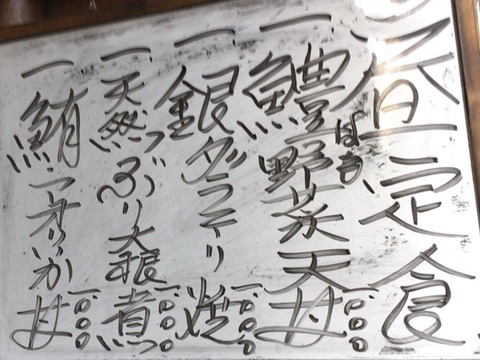 お昼定食
一 鱧野菜天丼 一〇〇〇
はも
一 銀ダラテリ焼 一〇〇〇
一 天然ぶり大根煮 一〇〇〇
一 鮪・アオリいか丼 一〇〇〇